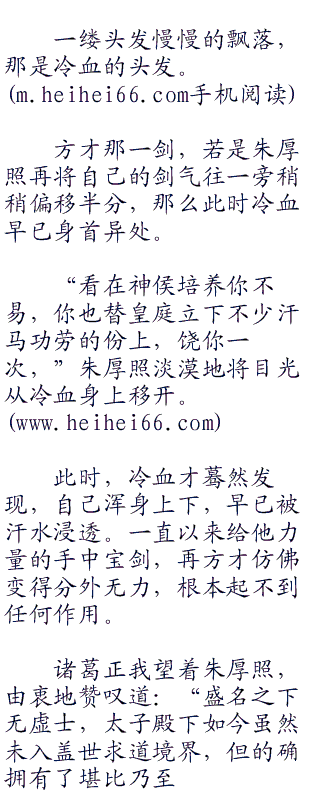 一缕头发慢慢的飘落，
那是冷血的头发。
(m.heihei66.com手机阅读)
方才那一剑，若是朱厚
照再将自己的剑气往一旁稍
稍偏移半分，那么此时冷血
早已身首异处。
“看在神侯培养你不
易，你也替皇庭立下不少汗
马功劳的份上，饶你一
次，”朱厚照淡漠地将目光
从冷血身上移开。
(www.heihei66.com)
此时，冷血才蓦然发
现，自己浑身上下，早已被
汗水浸透。一直以来给他力
量的手中宝剑，再方才仿佛
变得分外无力，根本起不到
任何作用。
诸葛正我望着朱厚照，
由衷地赞叹道：“盛名之下
无虚士，太子殿下如今虽然
未入盖世求道境界，但的确
拥有了堪比乃至